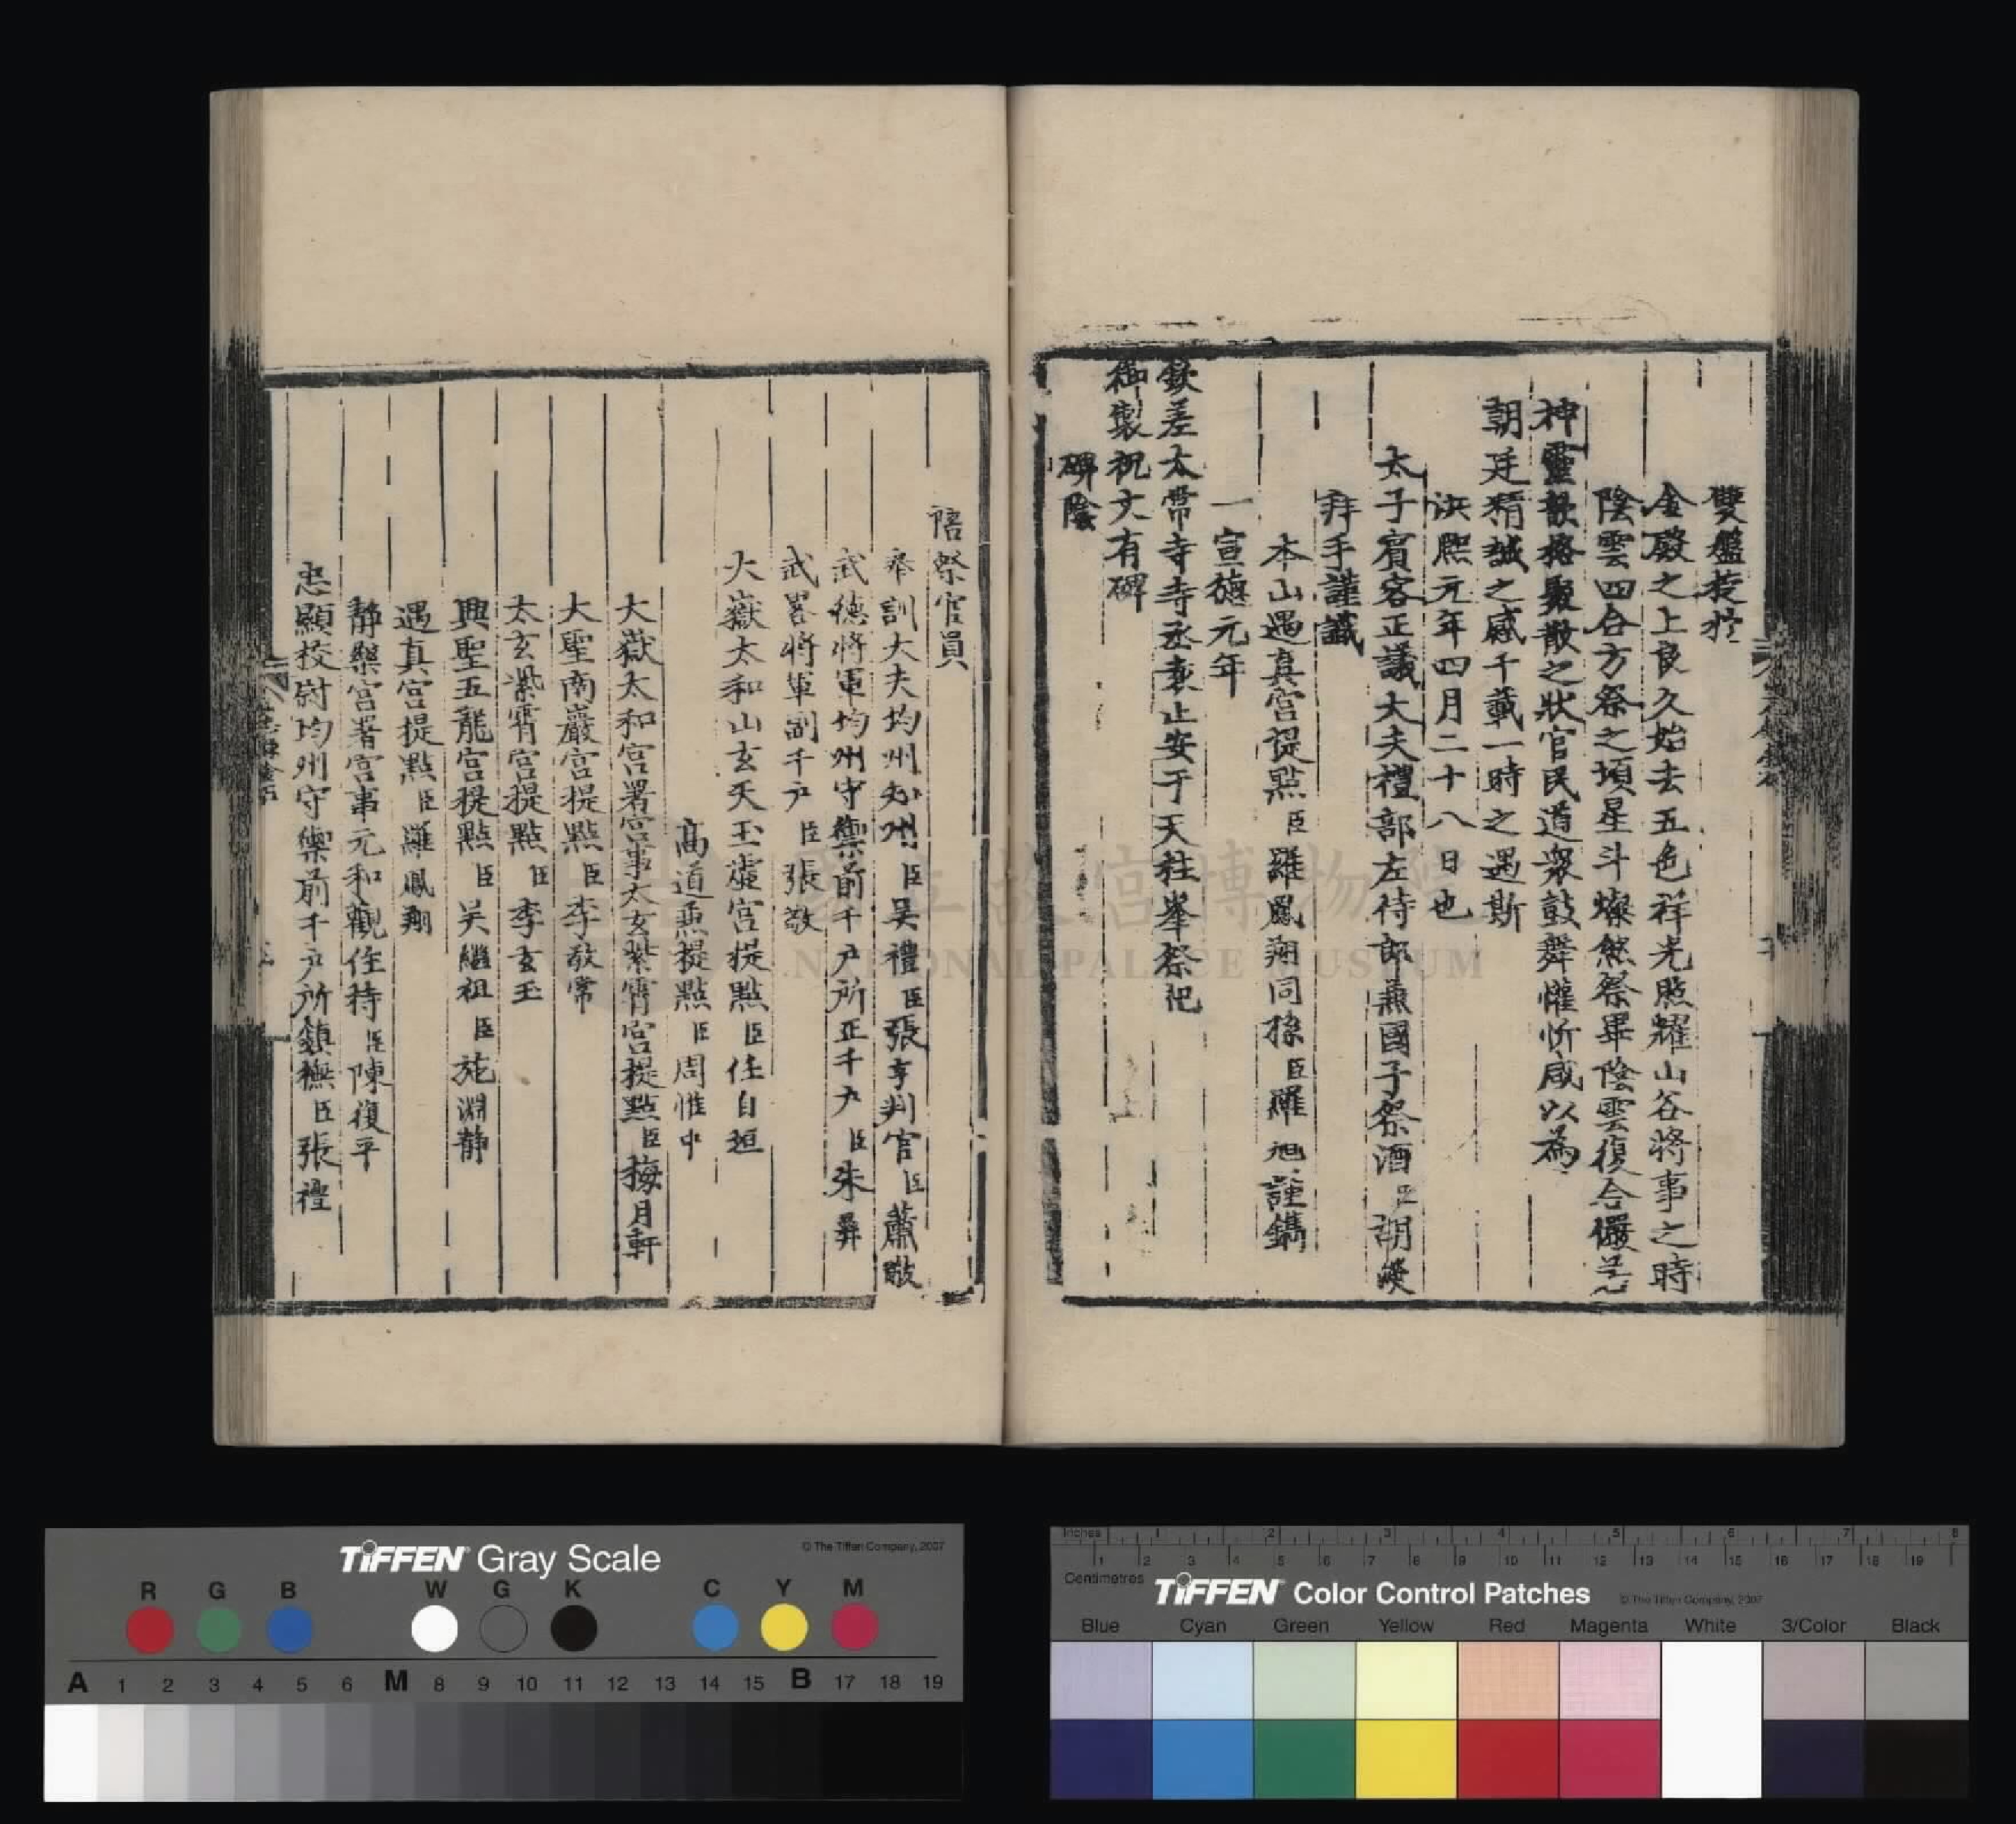 雙鶴旋於
金殿之上良久始去五色祥光照耀山谷將事之時
陰雲四合方祭之頃星斗燦然祭畢陰雲復合儼
神靈歆格聚散之狀官民道衆鼓舞懽忻咸以為
朝廷精誠之感千載一時之遇斯
洪熙元年四月二十八日也
太子賓客正議大夫禮部左侍郎兼國子祭酒臣胡濙
拜手謹識
本山遇真宮提點臣羅鳳翔同孫臣羅旭謹鐫
一宣德元年
欽差太常寺寺丞袁止安于天柱峯祭祀
御製祝文有碑
碑陰
陪祭官員
奉訓大夫均州知州臣吴禮臣張亨判官臣蕭敬
武德將軍均州守禦前千户所正千户臣朱彝
武畧將軍副千户臣張敬
大嶽太和山玄天玉虛宮提點臣任自垣
高道兼提點臣周惟中
大嶽太和宮署宮事太玄紫霄宮提點臣梅月軒
大聖南巖宮提點臣李敬常
太玄紫霄宮提點臣李玄玉
興聖五龍宮提點臣吴繼祖臣沱淵静
遇真宮提點臣羅鳳翔
静樂宮署宮事元和觀住持臣陳復平
忠顯校尉均州守禦前千户所鎮撫臣張禮
國立故宮博物院
NATIONAL PALACE MUSEUM
TIFFEN Gray Scale
© The Tiffen Company, 2007
R G B W G K C Y M
A 1 2 3 4 5 6 M 8 9 10 11 12 13 14 15 B 17 18 19
Inches 1 2 3 4 5 6 7 8
1 2 3 4 5 6 7 8 9 10 11 12 13 14 15 16 17 18 19
Centimetres
TIFFEN Color Control Patches
© The Tiffen Company, 2007
Blue Cyan Green Yellow Red Magenta White 3/Color Black